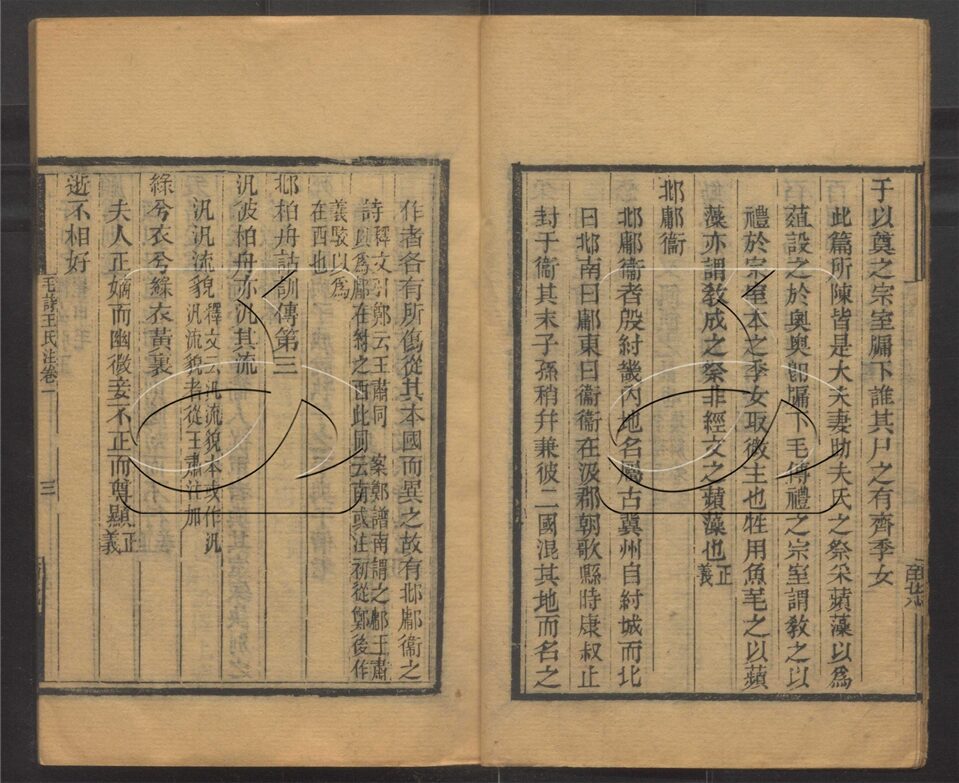 于以奠之宗室牖下誰其尸之有齊季女
此篇所陳皆是大夫妻助夫氏之祭采蘋藻以為
葅設之於奧奧卽牖下毛傳禮之宗室謂教之以
禮於宗室本之季女取微主也牲用魚芼之以蘋
藻亦謂敎成之祭非經文之蘋藻也正義
邶鄘衞
邶鄘衞者殷紂畿內地名屬古冀州自紂城而北
曰邶南曰鄘東曰衞衞在汲郡朝歌縣時康叔止
封于衞其末子孫稍幷兼彼二國混其地而名之
作者各有所傷從其本國而異之故有邶鄘衞之
詩釋文引鄭云王肅同 案鄭譜南謂之鄘王肅
以為鄘在紂之西此同云南或注初從鄭後作
義駁以為
在西也
邶柏舟詁訓傳第三
汎彼柏舟亦汎其流
汎汎流貌釋文云汎流貌本或作汎
汎流貌者從王肅注加
綠兮衣兮綠衣黃裏
夫人正嫡而幽微妾不正而尊顯正義
逝不相好
毛詩王氏注卷一
三